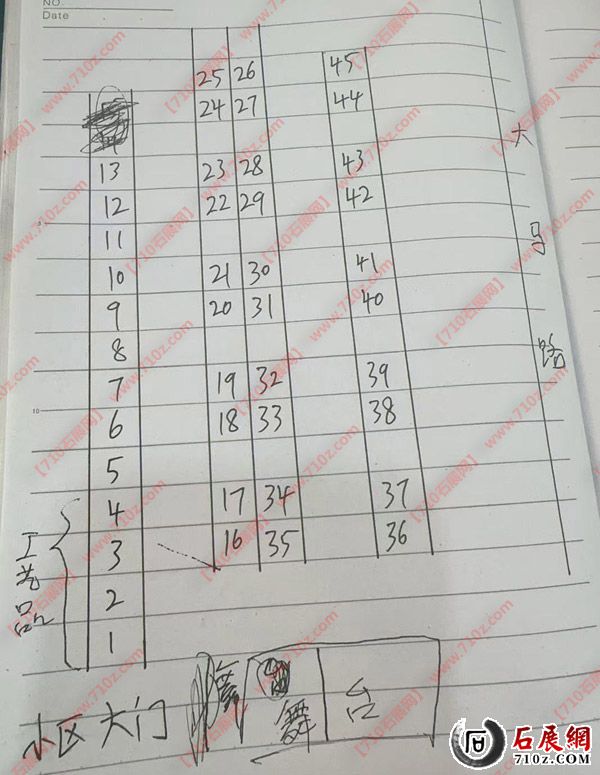 NO.
Date
25 26 45
24 27 44
13 23 28 43
12 22 29 42
11
10 21 30 41
9 20 31 40
8
7 19 32 39
6 18 33 38
5
4 17 34 37
3 16 35 36
2
1
工艺品
大马路
小区大门
舞台
10
【710石展网】 www.710z.com
石展網
710z.com